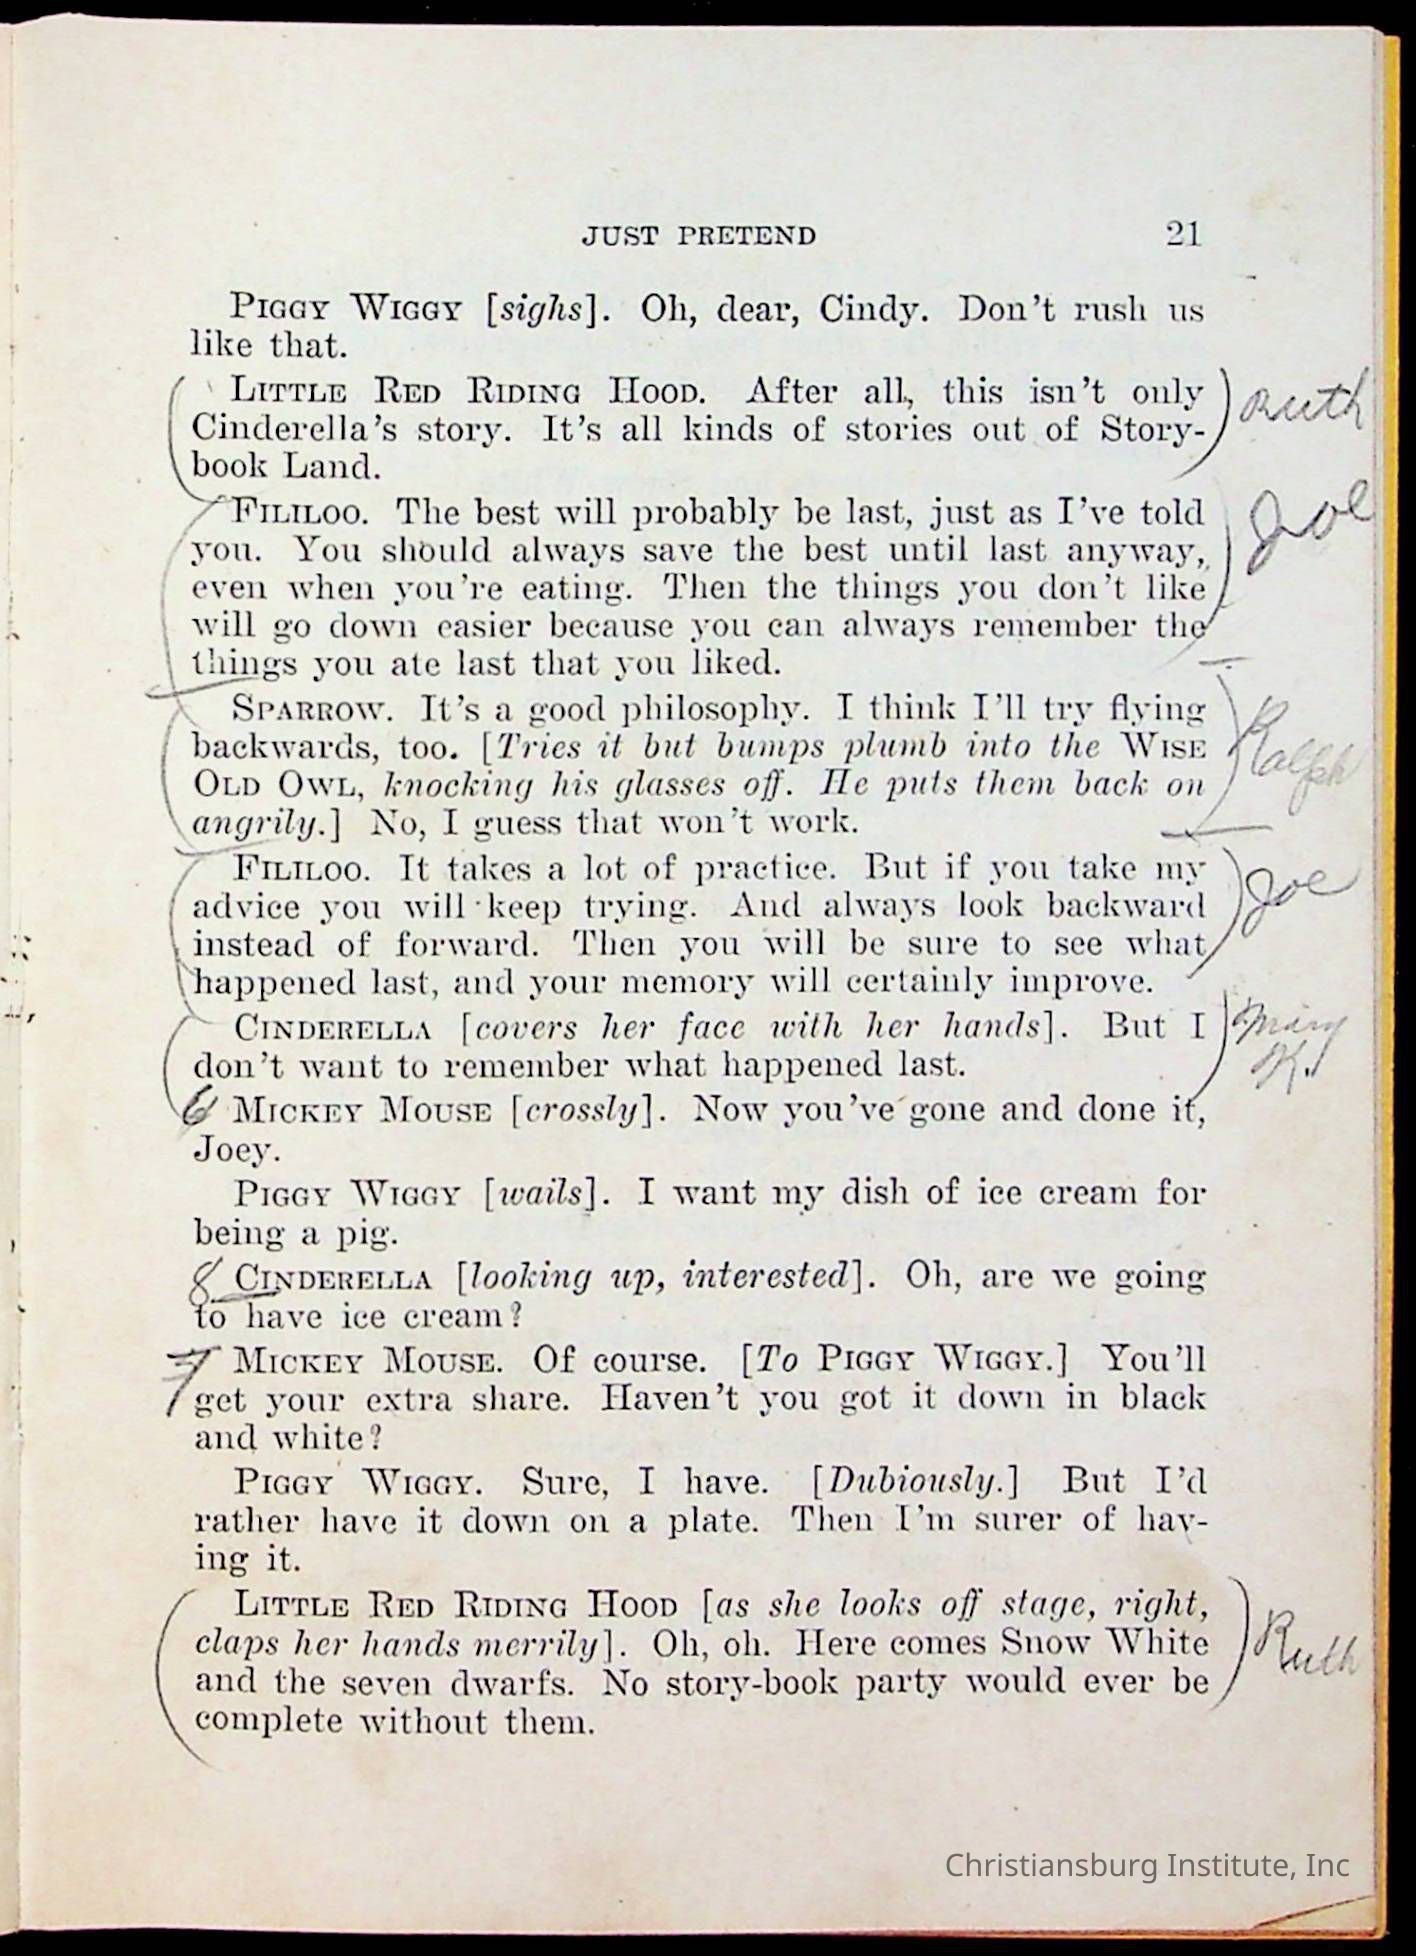 JUST PRETEND 21
PIGGY WIGGY [sighs]. Oh, dear, Cindy. Don't rush us
like that.
LITTLE RED RIDING HOOD. After all, this isn't only Ruth
Cinderella's story. It's all kinds of stories out of Story-
book Land.
FILILOO. The best will probably be last, just as I've told Joe
you. You should always save the best until last anyway,
even when you're eating. Then the things you don't like
will go down easier because you can always remember the
things you ate last that you liked.
SPARROW. It's a good philosophy. I think I'll try flying
backwards, too. [Tries it but bumps plumb into the WISE Ralph
OLD OWL, knocking his glasses off. He puts them back on
angrily.] No, I guess that won't work.
FILILOO. It takes a lot of practice. But if you take my Joe
advice you will keep trying. And always look backward
instead of forward. Then you will be sure to see what
happened last, and your memory will certainly improve.
CINDERELLA [covers her face with her hands]. But I Mary
don't want to remember what happened last. K.
6 MICKEY MOUSE [crossly]. Now you've gone and done it,
Joey.
PIGGY WIGGY [wails]. I want my dish of ice cream for
being a pig.
8 CINDERELLA [looking up, interested]. Oh, are we going
to have ice cream?
7 MICKEY MOUSE. Of course. [To PIGGY WIGGY.] You'll
get your extra share. Haven't you got it down in black
and white?
PIGGY WIGGY. Sure, I have. [Dubiously.] But I'd
rather have it down on a plate. Then I'm surer of hav-
ing it.
LITTLE RED RIDING HOOD [as she looks off stage, right,
claps her hands merrily]. Oh, oh. Here comes Snow White Ruth
and the seven dwarfs. No story-book party would ever be
complete without them.
Christiansburg Institute, Inc